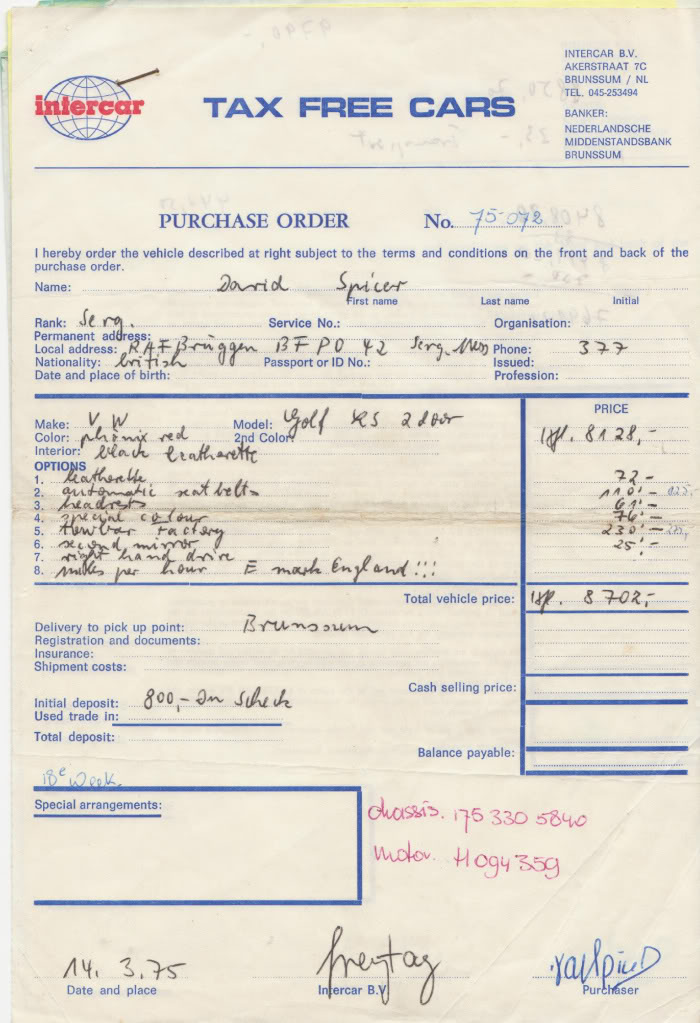 INTERCAR B.V.
AKERSTRAAT 7C
BRUNSSUM / NL
TEL. 045-253494
BANKER:
NEDERLANDSCHE
MIDDENSTANDSBANK
BRUNSSUM
intercar
TAX FREE CARS
PURCHASE ORDER No. 75-072
I hereby order the vehicle described at right subject to the terms and conditions on the front and back of the
purchase order.
Name: David Spicer
First name Last name Initial
Rank: Serg. Service No.: Organisation:
Permanent address:
Local address: RAF Brüggen BFPO 42 Serg. Mess Phone: 377
Nationality: british Passport or ID No.: Issued:
Date and place of birth: Profession:
PRICE
Make: VW Model: Golf 2 door
Color: phönix red 2nd Color: Hfl. 8128,-
Interior: black leatherette
OPTIONS
1. leatherette 72-
2. automatic seat belts 110,-
3. headrests 61,-
4. special colour 76,-
5. towbar factory 230,-
6. second mirror 25,-
7. right hand drive
8. miles per hour E mark England!!!
Total vehicle price: Hfl. 8702,-
Delivery to pick up point: Brunssum
Registration and documents:
Insurance:
Shipment costs:
Cash selling price:
Initial deposit: 800,- in Scheck
Used trade in:
Total deposit:
Balance payable:
18e Week.
Special arrangements:
chassis. 175 330 5840
motor. H094359
14. 3.75 freytag
Date and place Intercar B.V. Purchaser